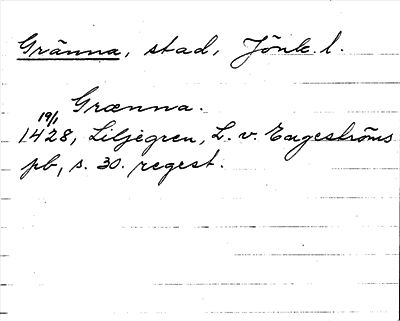 Gränna, stad, Jönk. l.
Grænna.
19/1
1428, Liljegren, L. v. Engeströms
pb, s. 30. regest.